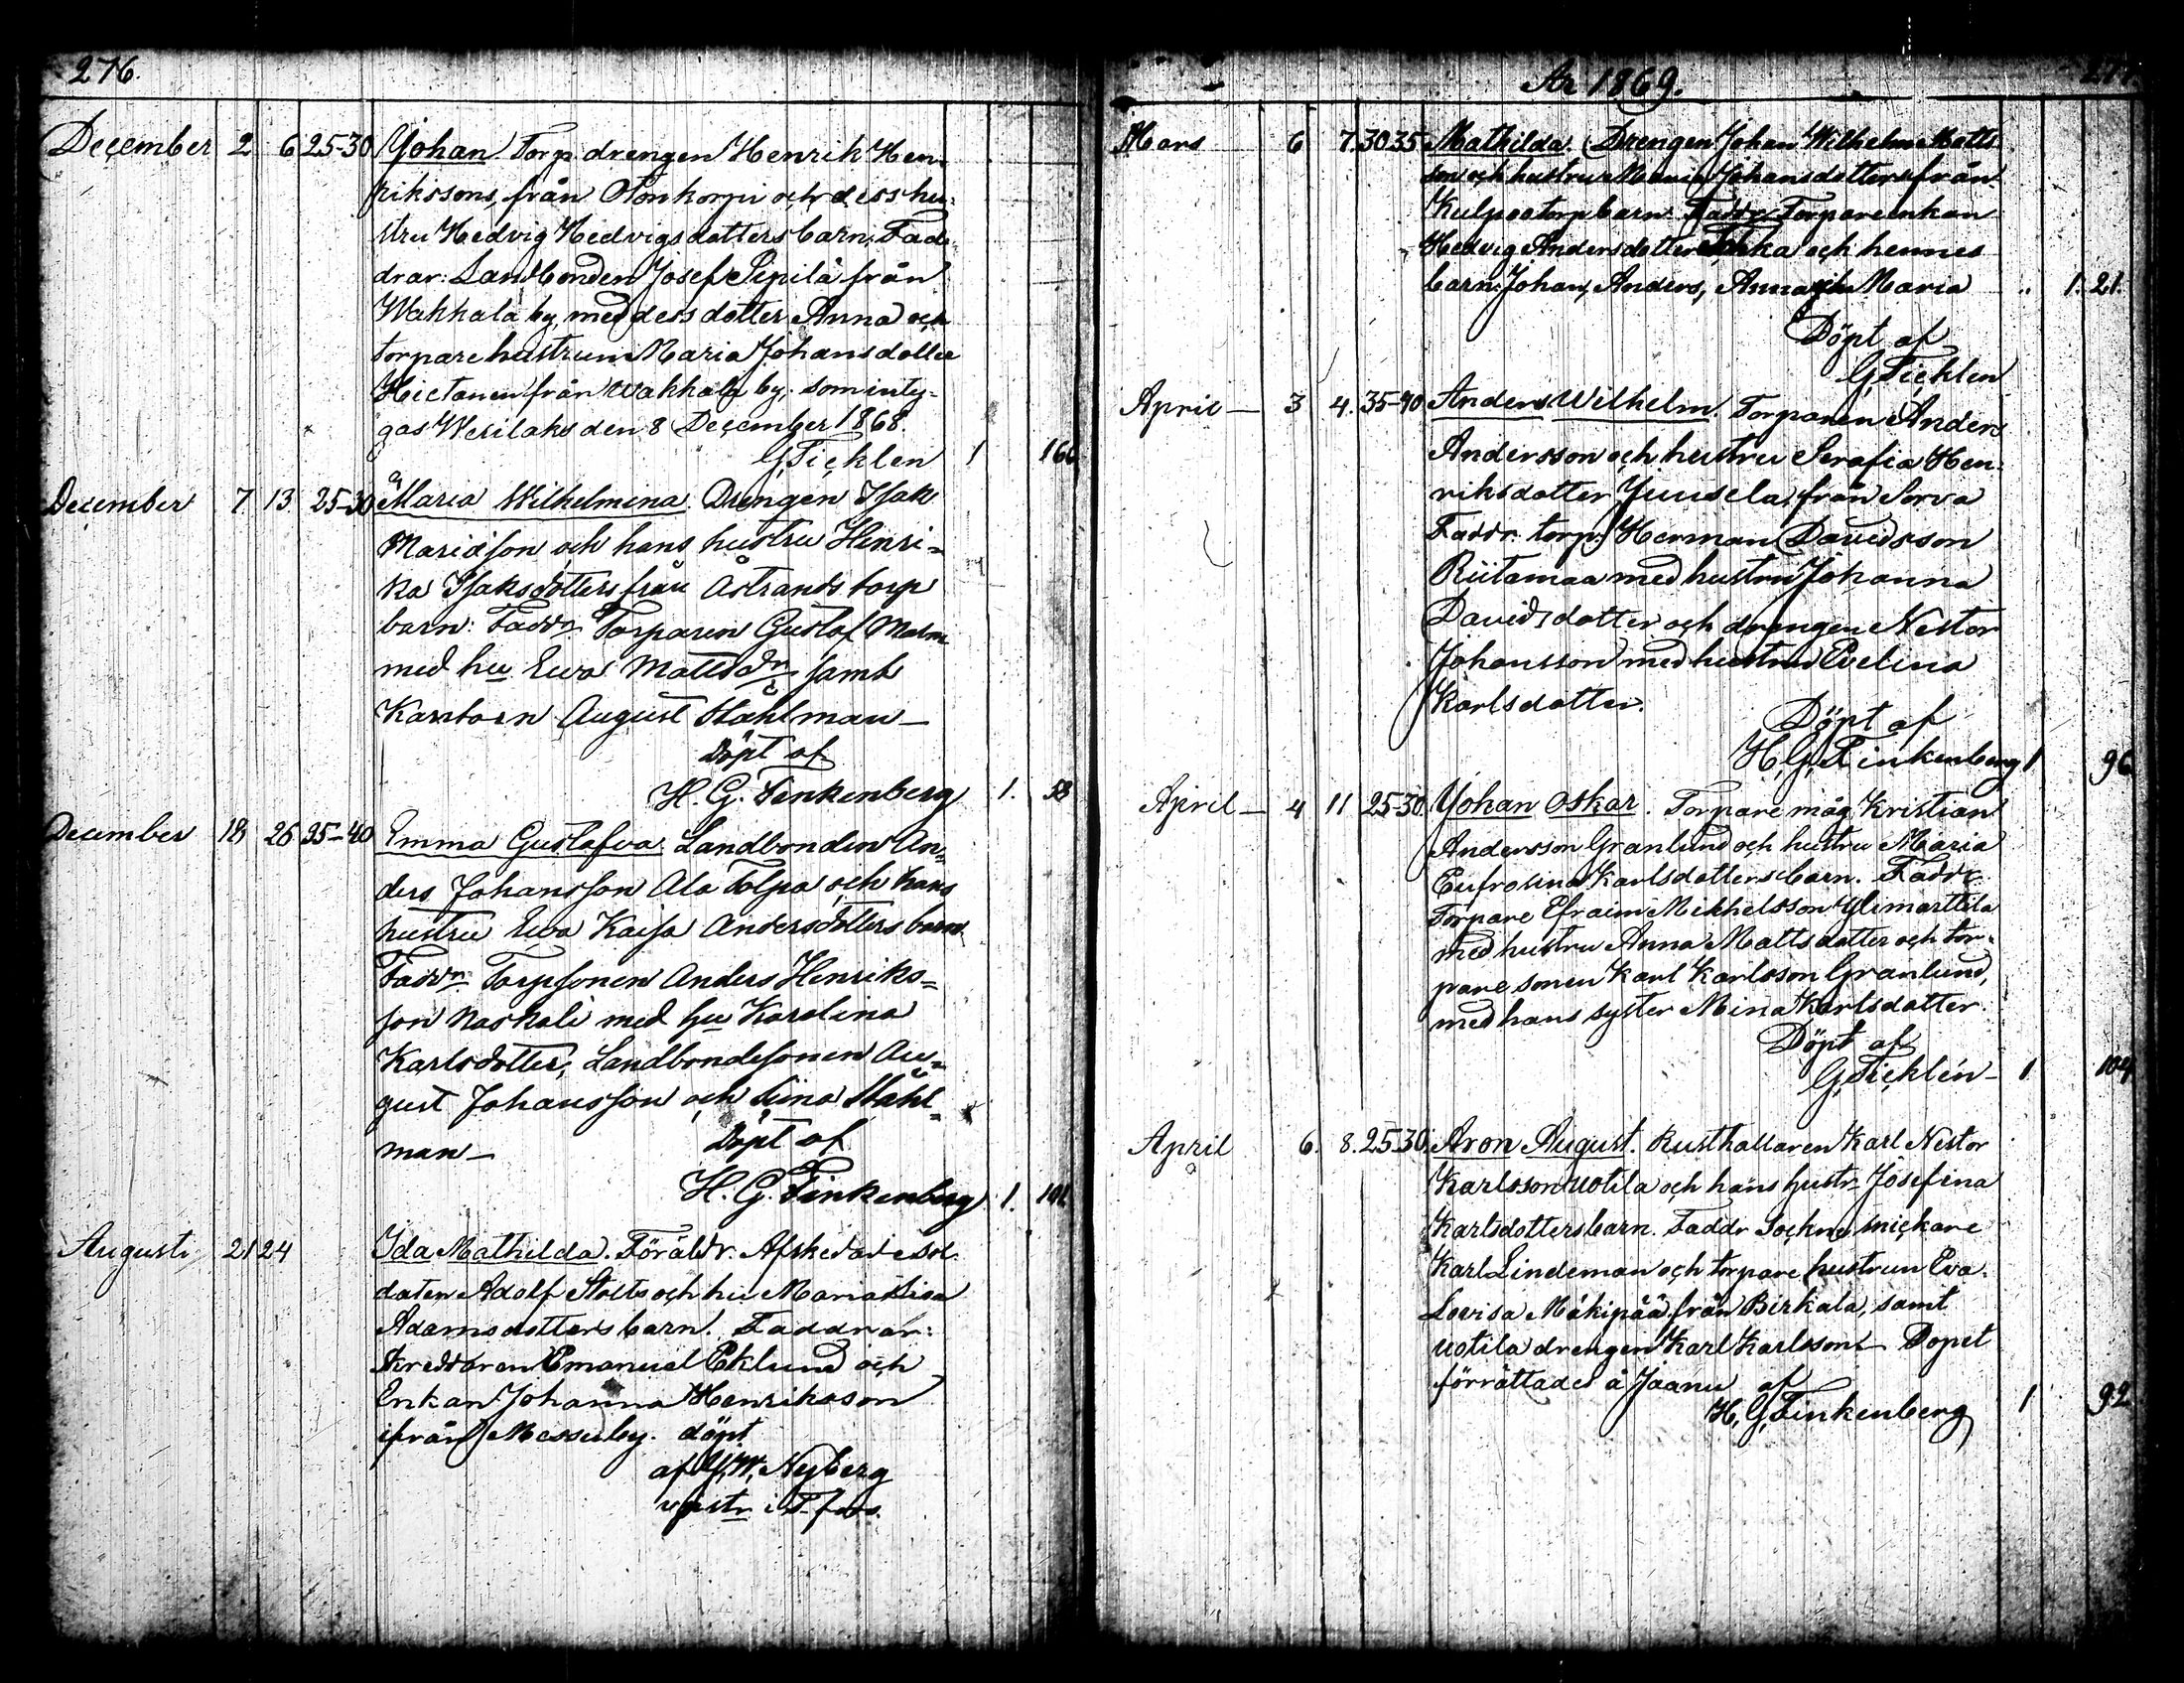 276.
December 2 6 25-30 Johan. Torp. drengen Henrik Hen-
rikssons, från Olonkorpi och dess hu-
stru Hedvig Hedvigsdotters barn. Fad-
drar: Landbonden Josef Sipilä från
Wakkala by, med dess dotter Anna och
torparehustrun Maria Johansdotter
Hietanen från Wakkala by; som inty-
gas Wesilaks den 8 December 1868.
G, Ticklen 1 166
December 7 13 25-30 Maria Wilhelmina. Drengen Isak
Mariæson och hans hustru Henri-
ka Isaksdotters från Åstrands torp
barn: Faddr. Torparen Gustaf Malm
med hu Ewa Mattsdr. samt
August Ståhlman—
Döpt af
H. G. Finkenberg 1. 58
December 18 26 35-40 Emma Gustafva. Landbonden An-
ders Johansson Ala Tolpa och hans
hustru Ewa Kaisa Andersdotters barn
Faddr. Torpsonen Anders Henriks-
son Naskali med hu Karolina
Karlsdotter, Landbondesonen Au-
gust Johansson och Stina Ståhl-
man— Döpt af
H. G. Finkenberg 1. 101.
Augusti 21 24 Ida Mathilda. Föräldr. Afskedade sol-
daten Adolf Stolts och hu Maria Lisa
Adamsdotters barn. Faddrar:
Skreddaren Emanuel Eklund och
Enkan Johanna Henriksson
ifrån Messuby. döpt
af G, W, Nyberg
i T-fors.
År 1869. 277.
Mars 6 7. 30 35 Mathilda. Drengen Johan Wilhelm Matts
son och hustru Maria Johansdotters från
Kulpootorp barn. Faddr. Torpareenkan
Hedvig Andersdotter och hennes
barn: Johan, Anders, Anna och Maria „ 1. 21.
Döpt af
G, Ticklen
April— 3 4. 35-40 Anders Wilhelm. Torparen Anders
Andersson och hustru Serafia Hen-
riksdotter Juusela, från Sorva
Faddr. torp. Herman Davidsson
Riitamaa med hustru Johanna
Davidsdotter och drengen Nestor
Johansson med hustru Evelina
Karlsdotter.
Döpt af
H, G, Finkenberg 1 96
April— 4 11 25-30. Johan Oskar. Torpare måg Kristian
Andersson Granlund och hustru Maria
Eufrosina Karlsdotters barn. Faddr.
Torpare Efraim Mikkelsson Ylimarttila
med hustru Anna Mattsdotter och tor-
pare sonen Karl Karlsson Granlund,
med hans syster Mina Karlsdotter.
Döpt af
G, Ticklén— 1 104
April 6. 8. 25.30. Aron August. Rusthallaren Karl Nestor
Karlsson Uotila och hans hustr. Josefina
Karlsdotters barn. Faddr Sockne snickare
Karl Lindeman och torpare hustrun Eva
Lovisa Mäkipää från Birkala, samt
Uotila drengen Karl Karlsson.— Dopet
förrättades å Jaanu af
H, G, Finkenberg 1 92